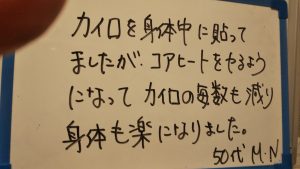 カイロを身体中に貼って
ましたが、コアヒートをやるよう
になって カイロの毎数も減り
身体も楽になりました。
50代 M・N